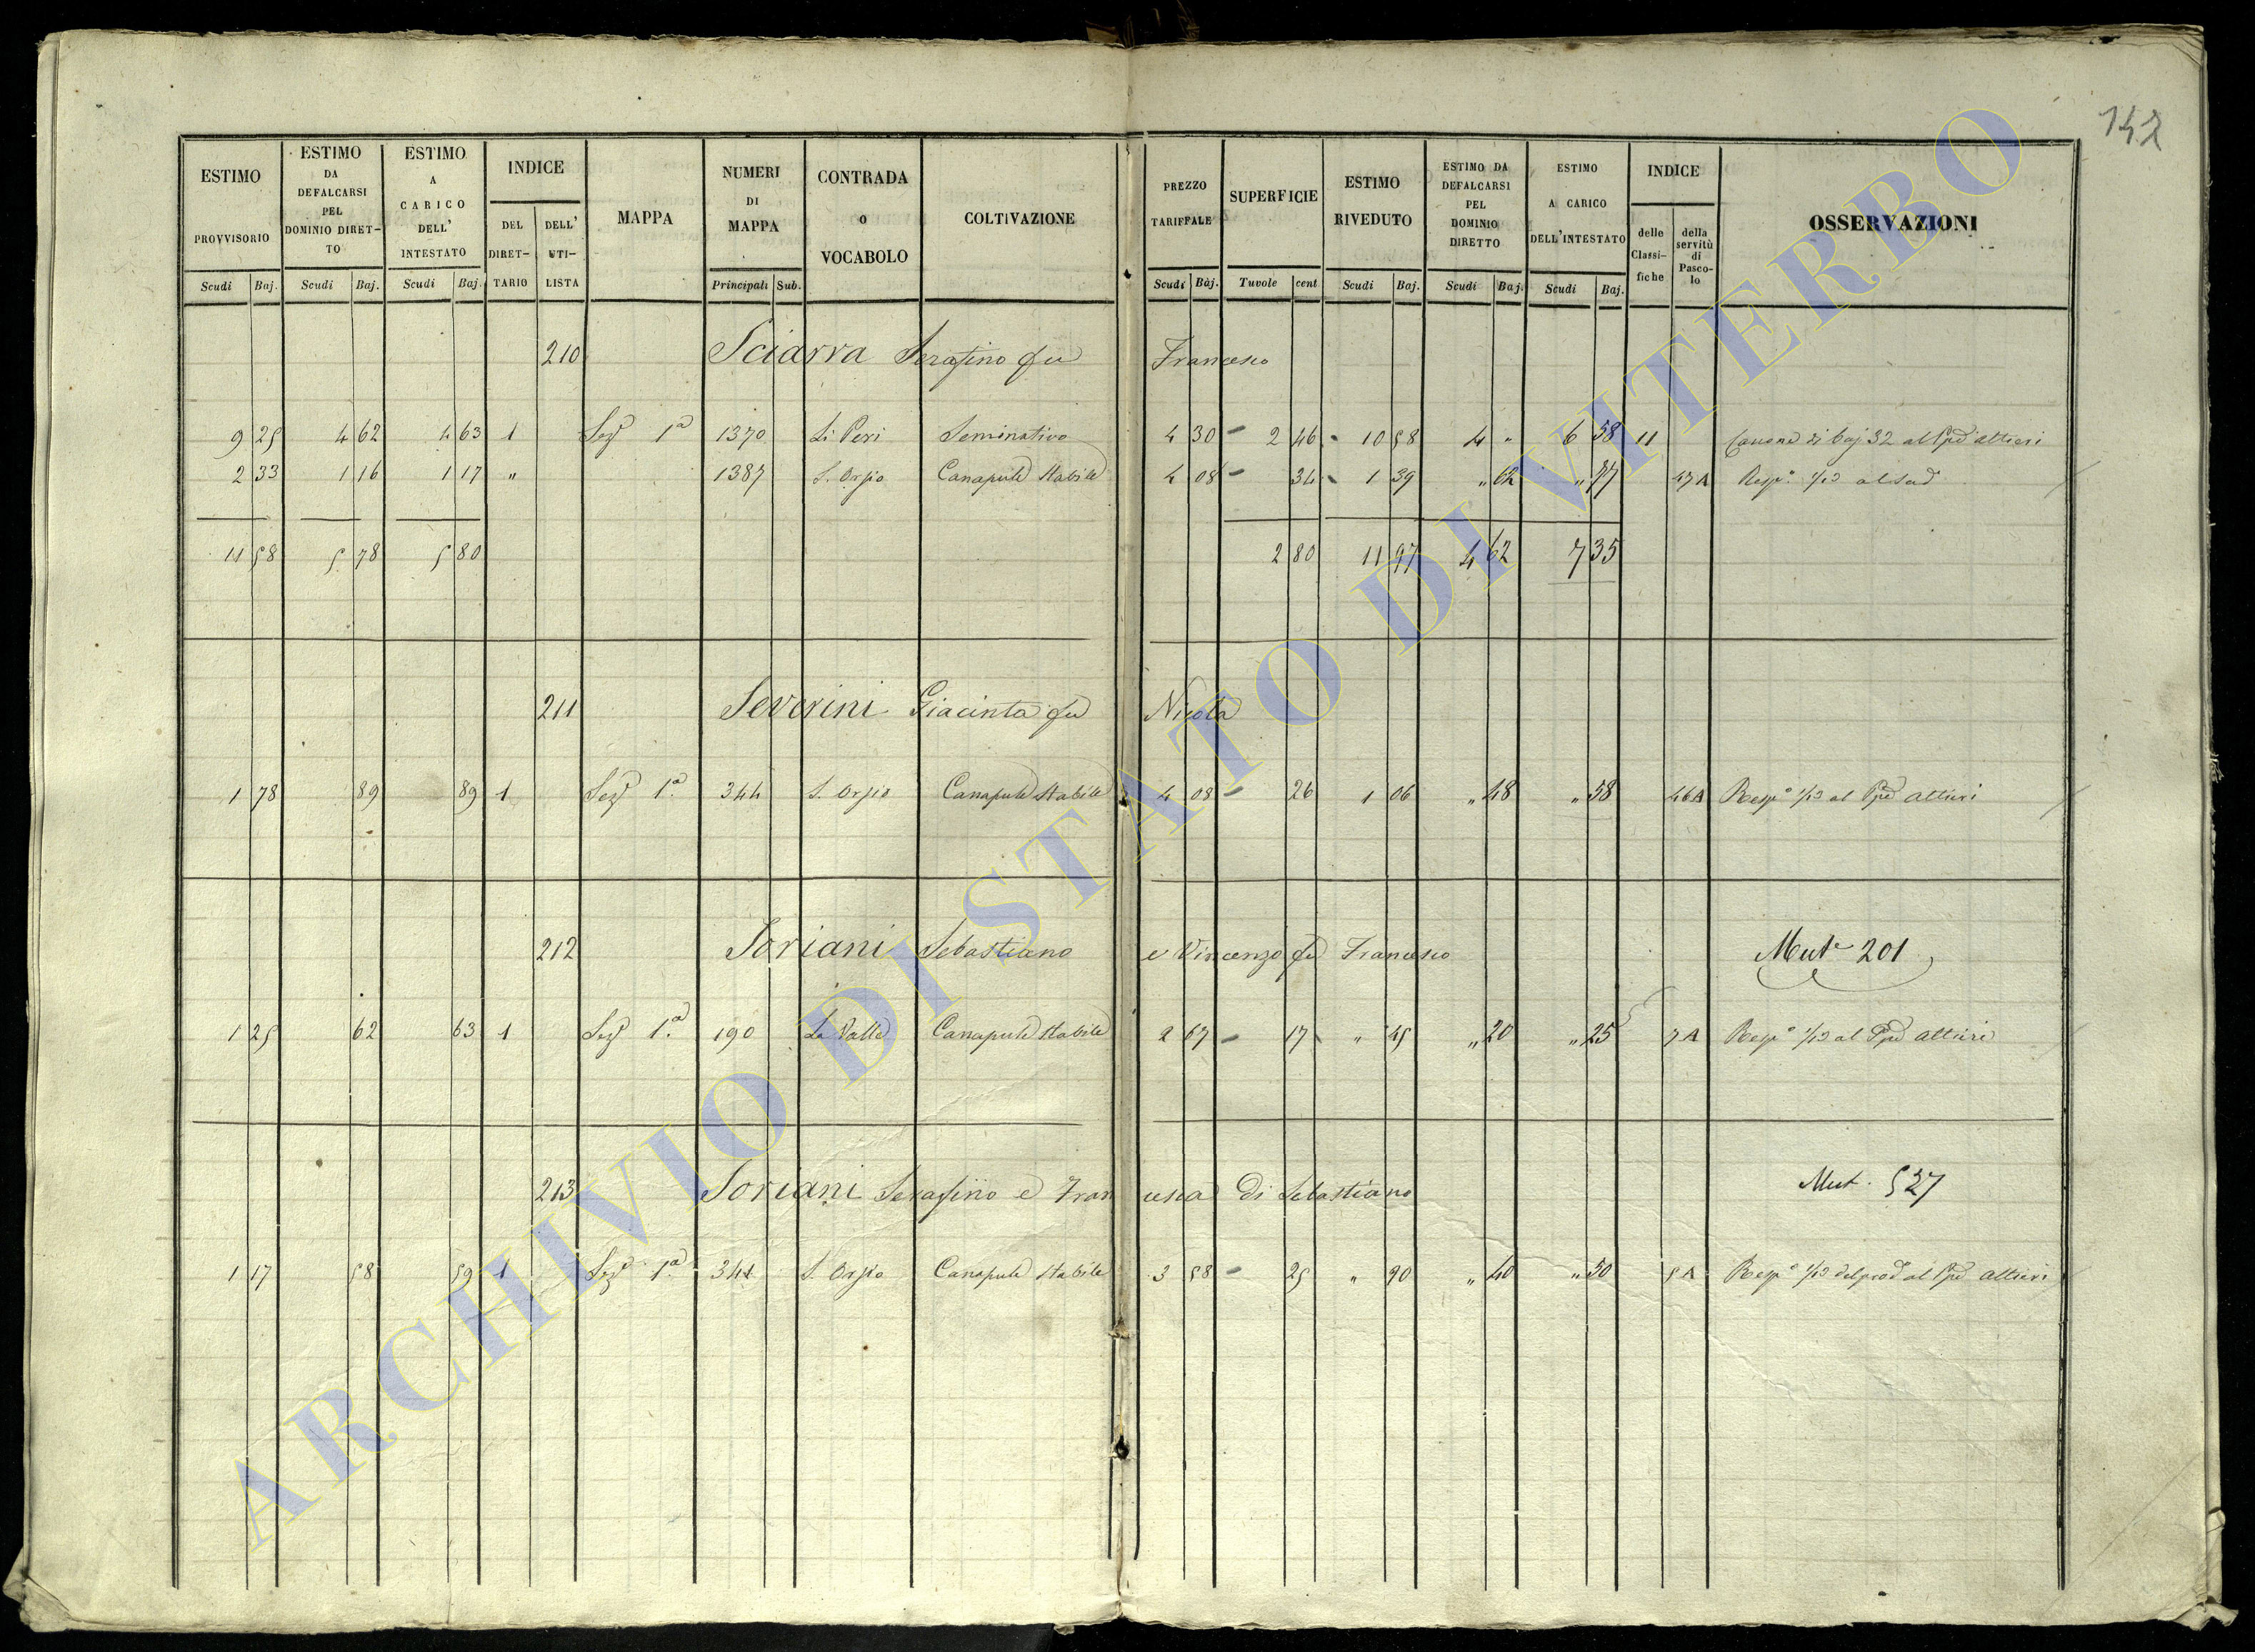 142
ESTIMO PROVVISORIO Scudi Baj. | ESTIMO DA DEFALCARSI PEL DOMINIO DIRET-TO Scudi Baj. | ESTIMO A CARICO DELL' INTESTATO Scudi Baj. | INDICE DEL DIRET-TARIO DELL' UTI-LISTA | MAPPA | NUMERI DI MAPPA Principali Sub. | CONTRADA o VOCABOLO | COLTIVAZIONE | PREZZO TARIFFALE Scudi Baj. | SUPERFICIE Tavole cent | ESTIMO RIVEDUTO Scudi Baj. | ESTIMO DA DEFALCARSI PEL DOMINIO DIRETTO Scudi Baj. | ESTIMO A CARICO DELL'INTESTATO Scudi Baj. | INDICE delle Classi-fiche della servitù di Pasco-lo | OSSERVAZIONI
210 Sciarra Serafino fu Francesco
9 25 4 62 4 63 1 Sezᵉ 1ª 1370 Li Peri Seminativo 4 30 2 46 10 58 4 " 6 58 11 Canone di baj 32 al Ppe Altieri
2 33 1 16 1 17 " 1387 S. Orsio Canapule Stabile 4 08 34 1 39 " 62 " 77 47 A Respᵃ 1/10 al Sud
11 58 5 78 5 80 2 80 11 97 4 62 7 35
211 Severini Giacinta fu Nicola
1 78 89 89 1 Sezᵉ 1ª 344 S. Orsio Canapule Stabile 4 08 26 1 06 " 48 " 58 46 A Respᵃ 1/10 al Ppe Altieri
212 Soriani Sebastiano e Vincenzo fu Francesco Mutᵉ 201
1 25 62 63 1 Sezᵉ 1ª 190 La Valle Canapule Stabile 2 67 17 " 45 " 20 " 25 7 A Respᵃ 1/10 al Ppe Altieri
213 Soriani Serafino e Francesca di Sebastiano Mut. 527
1 17 58 59 1 Sezᵉ 1ª 341 S. Orsio Canapule Stabile 3 58 25 " 90 " 40 " 50 5 A Respᵃ 1/10 del prodᵒ al Ppe Altieri
ARCHIVIO DI STATO DI VITERBO